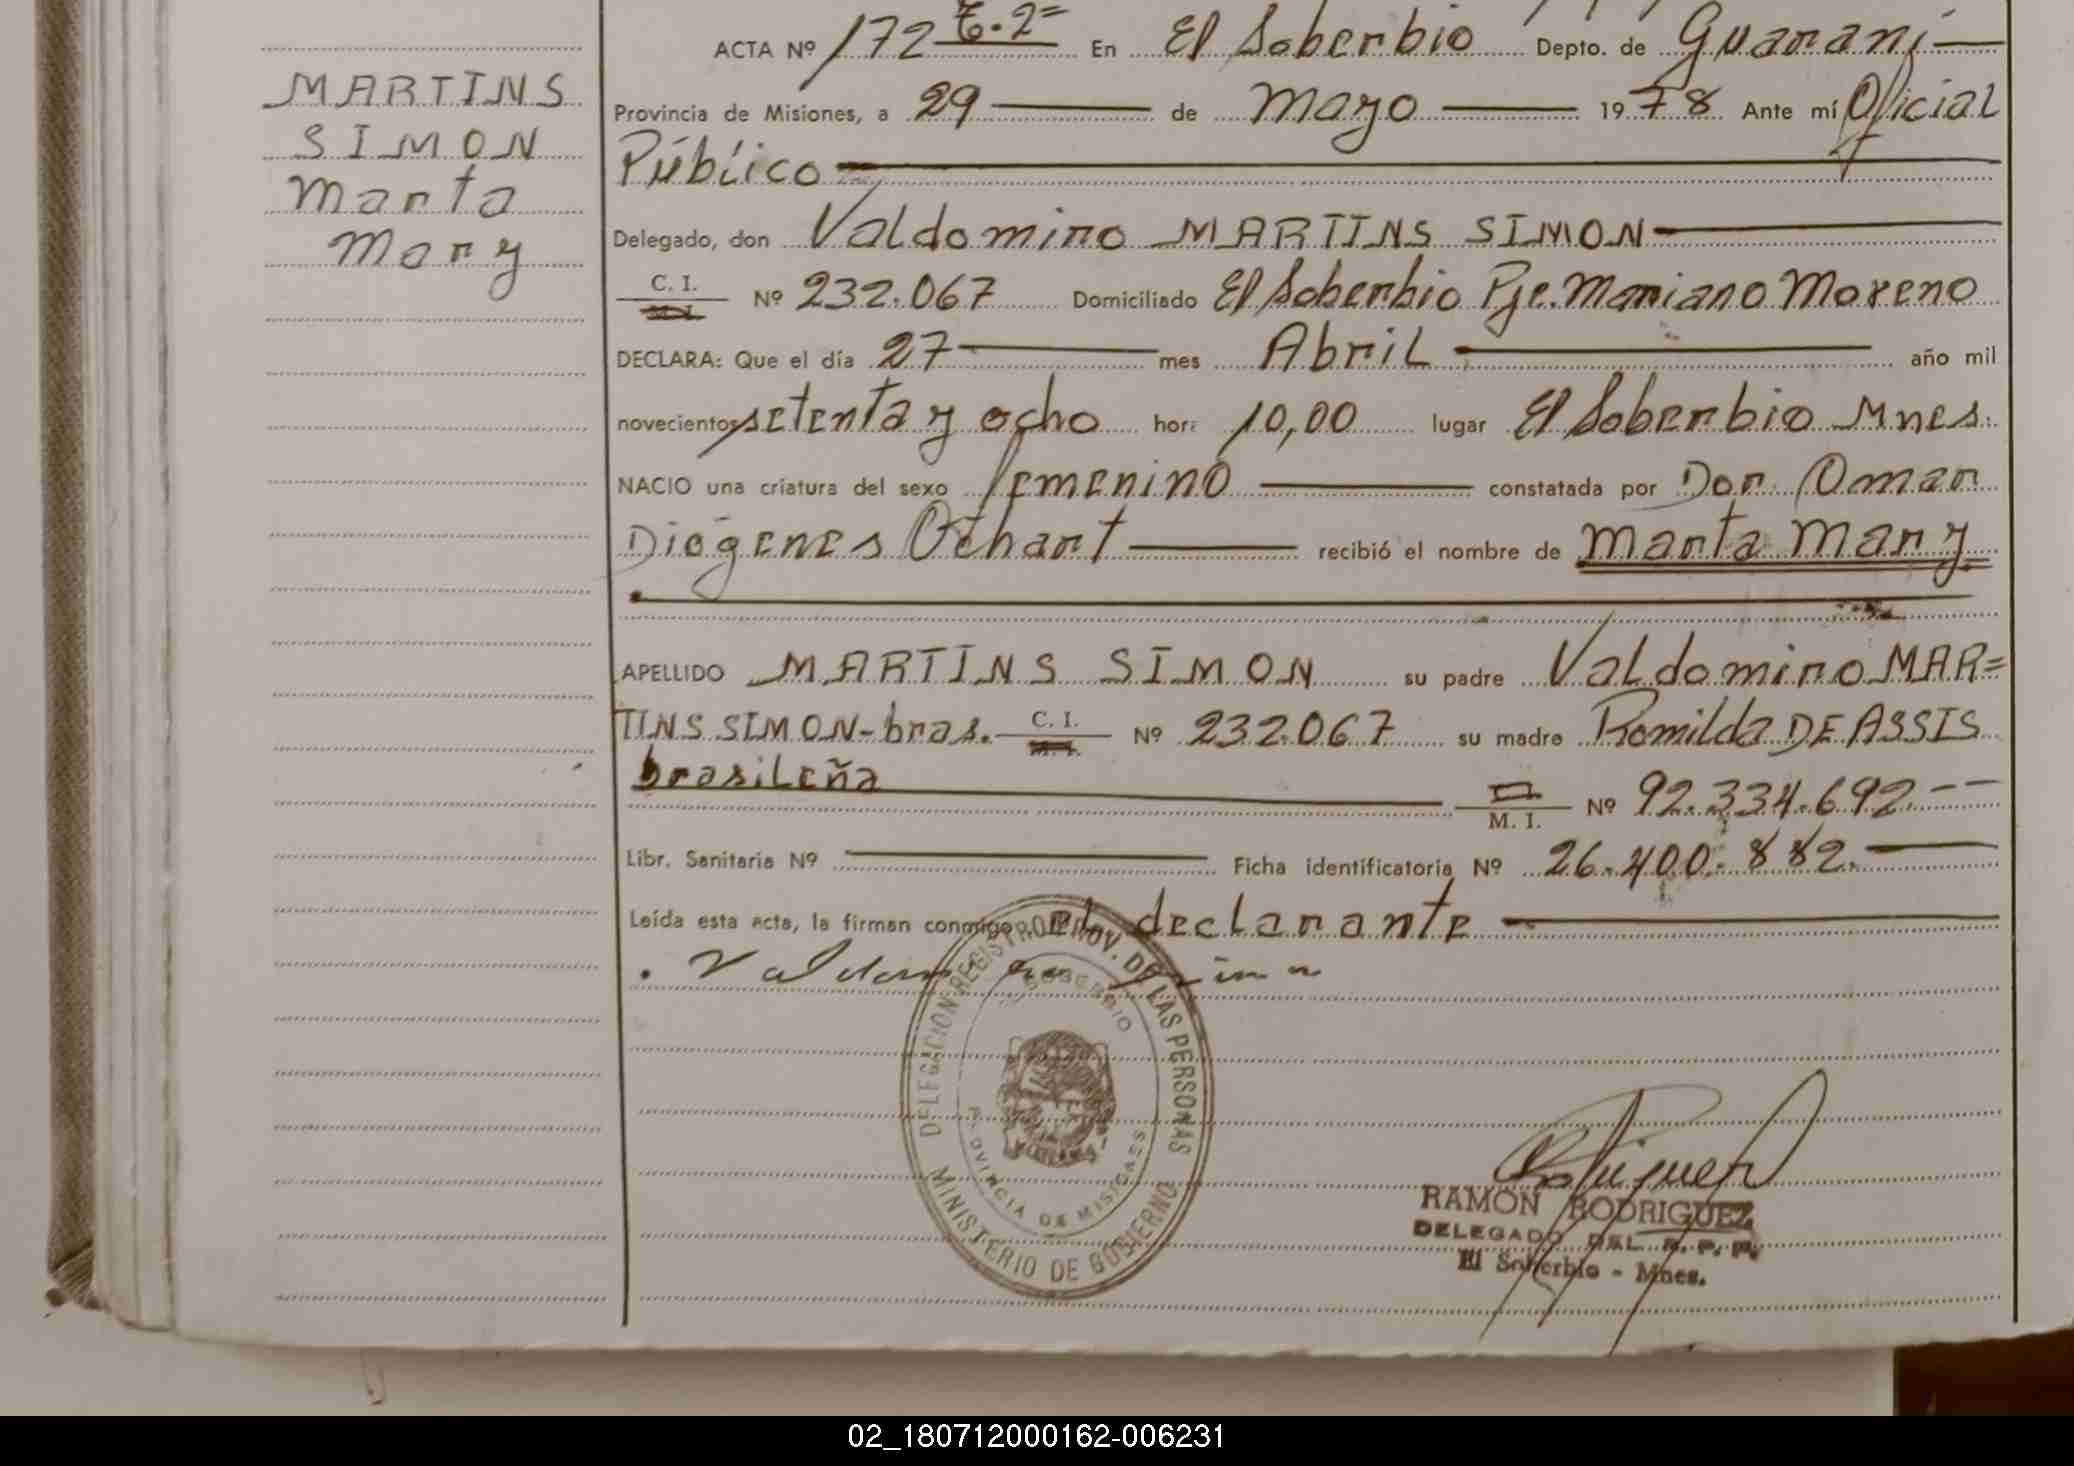 MARTINS
SIMON
Marta
Mary
ACTA Nº 172 T.2= En El Soberbio Depto. de Guaraní
Provincia de Misiones, a 29 de Mayo 1978 Ante mí Oficial
Público
Delegado, don Valdomiro MARTINS SIMON
C. I.
Nº 232.067 Domiciliado El Soberbio Pje. Mariano Moreno
DECLARA: Que el día 27 mes Abril año mil
novecientos setenta y ocho hora 10,00 lugar El Soberbio Mnes.
NACIO una criatura del sexo femenino constatada por Don Omar
Diógenes Othart recibió el nombre de Marta Mary
APELLIDO MARTINS SIMON su padre Valdomiro MAR=
TINS SIMON- bras. C. I. M. I. Nº 232.067 su madre Romilda DE ASSIS
brasileña
M. I. Nº 92.334.692.--
Libr. Sanitaria Nº Ficha identificatoria Nº 26.400.882.
Leída esta acta, la firman conmigo el declarante
DELEGACION REGISTRO PROV. DE LAS PERSONAS
SOBERBIO
PROVINCIA DE MISIONES
MINISTERIO DE GOBIERNO
RAMON RODRIGUEZ
DELEGADO DEL R. P. P.
El Soberbio - Mnes.
02_180712000162-006231